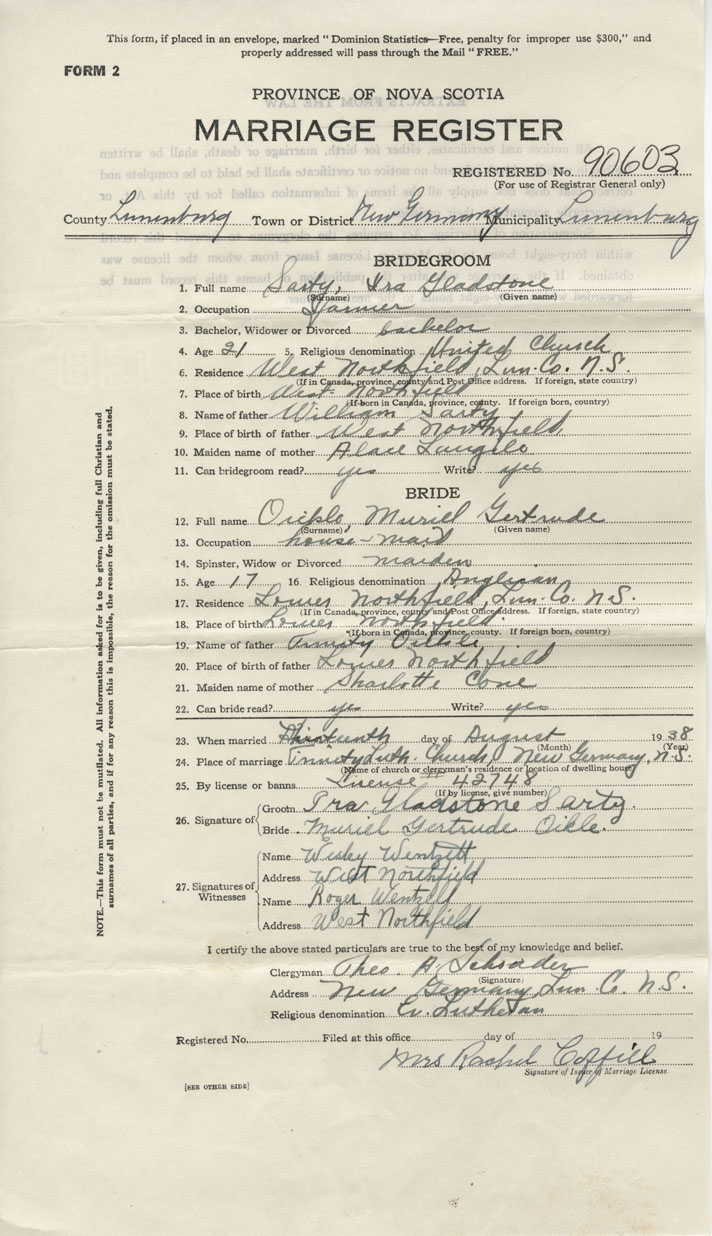 This form, if placed in an envelope, marked "Dominion Statistics—Free, penalty for improper use $300," and
properly addressed will pass through the Mail "FREE."
FORM 2
PROVINCE OF NOVA SCOTIA
MARRIAGE REGISTER
REGISTERED No. 90603
(For use of Registrar General only)
County Lunenburg Town or District New Germany Municipality Lunenburg
BRIDEGROOM
1. Full name Sarty, Ira Gladstone
(Surname) (Given name)
2. Occupation Farmer
3. Bachelor, Widower or Divorced bachelor
4. Age 21 5. Religious denomination United Church
6. Residence West Northfield, Lun. Co. N.S.
(If in Canada, province, county and Post Office address. If foreign, state country)
7. Place of birth West Northfield
(If born in Canada, province, county. If foreign born, country)
8. Name of father William Sarty
9. Place of birth of father West Northfield
10. Maiden name of mother Langile
11. Can bridegroom read? yes Write? yes
BRIDE
12. Full name Oickle, Muriel Gertrude
(Surname) (Given name)
13. Occupation house-maid
14. Spinster, Widow or Divorced maiden
15. Age 17 16. Religious denomination Anglican
17. Residence Lower Northfield, Lun. Co. N.S.
(If in Canada, province, county and Post Office address. If foreign, state country)
18. Place of birth Lower Northfield
(If born in Canada, province, county. If foreign born, country)
19. Name of father
20. Place of birth of father Lower Northfield
21. Maiden name of mother Sharlotte
22. Can bride read? yes Write? yes
23. When married Thirteenth day of August 1938
(Month) (Year)
24. Place of marriage Trinity Luth. Church, New Germany, N.S.
(Name of church or clergyman's residence or location of dwelling house)
25. By license or banns License # 42748
(If by license, give number)
26. Signature of Groom Ira Gladstone Sarty.
Bride Muriel Gertrude Oikle.
27. Signatures of Witnesses
Name Wesley Wentzell
Address West Northfield
Name Roger Wentzell
Address West Northfield
I certify the above stated particulars are true to the best of my knowledge and belief.
Clergyman Theo. A. Schrader
(Signature)
Address New Germany, Lun. Co. N.S.
Religious denomination Ev. Lutheran
Registered No. Filed at this office day of 19
Mrs Rachel Coffill
Signature of Issuer of Marriage License.
[SEE OTHER SIDE]
NOTE.—This form must not be mutilated. All information asked for is to be given, including full Christian and
surnames of all parties, and if for any reason this is impossible, the reason for the omission must be stated.